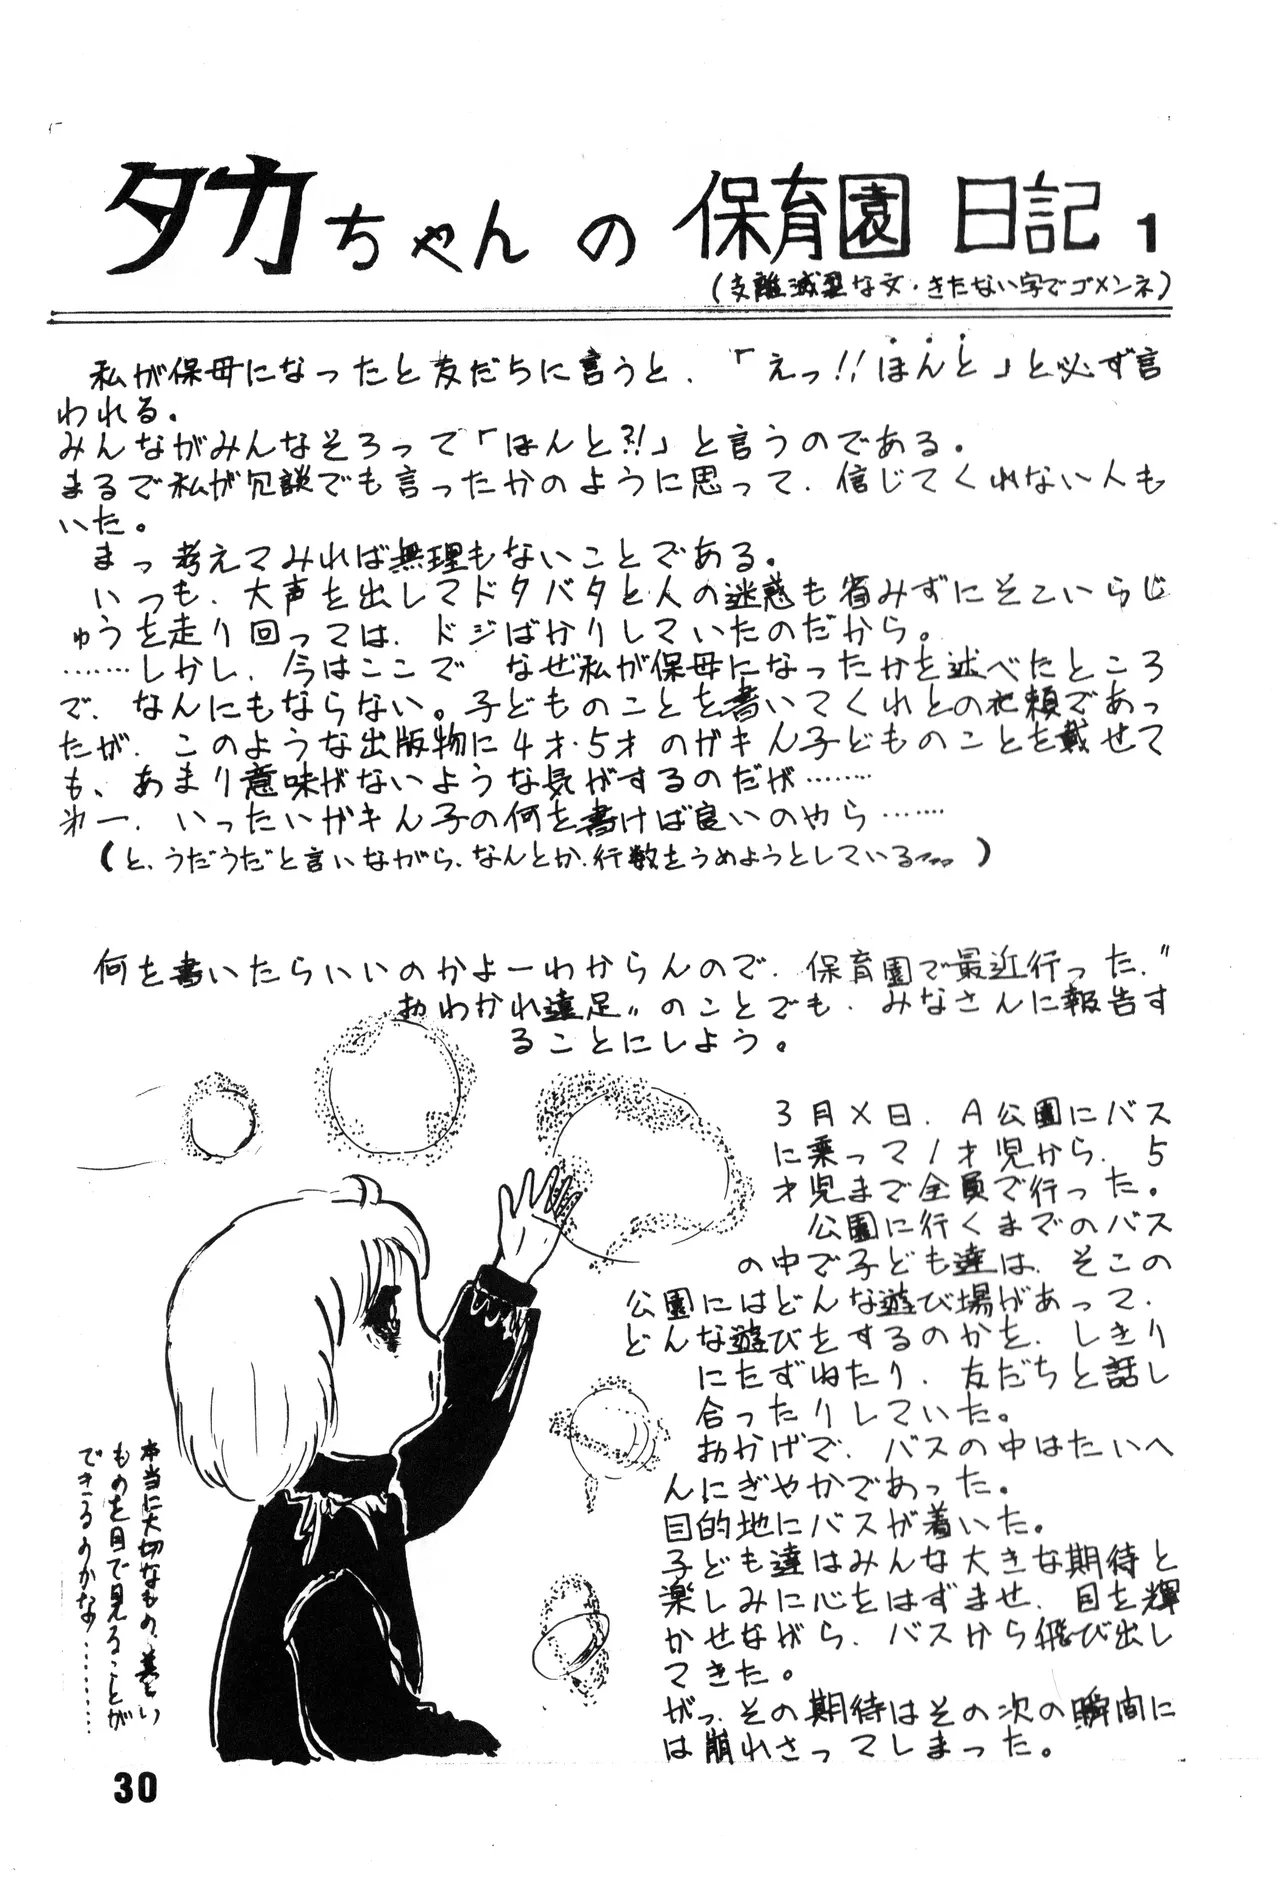 タカちゃんの保育園日記1
(支離滅裂な文・きたない字でゴメンネ)
私が保母になったと友だちに言うと、「えっ!!ほんと」と必ず言
われる。
みんながみんなそろって「ほんと?!」と言うのである。
まるで私が冗談でも言ったかのように思って、信じてくれない人も
いた。
まっ考えてみれば無理もないことである。
いつも、大声を出してドタバタと人の迷惑も省みずにそこいらじ
ゅうを走り回っては、ドジばかりしていたのだから。
……しかし、今はここで なぜ私が保母になったかを述べたところ
で、なんにもならない。子どものことを書いてくれとの依頼であっ
たが、このような出版物に4才・5才のガキんこどものことを載せて
も、あまり意味がないような気がするのだが……
わー、いったいガキんこの何を書けば良いのやら……
(と、うだうだと言いながら、なんとか、行数をうめようとしている)
何を書いたらいいのかよーわからんので、保育園で最近行った、〃
おわかれ遠足〃のことでも、みなさんに報告す
ることにしよう。
3月×日、A公園にバス
に乗って1才児から、5
才児まで全員で行った。
公園に行くまでのバス
の中で子ども達は、そこの
公園にはどんな遊び場があって、
どんな遊びをするのかを、しきり
にたずねたり、友だちと話し
合ったりしていた。
おかげで、バスの中はたいへ
んにぎやかであった。
目的地にバスが着いた。
子ども達はみんな大きな期待と
楽しみに心をはずませ、目を輝
かせながら、バスから飛び出し
てきた。
がっ、その期待はその次の瞬間に
は崩れさってしまった。
本当に大切なもの、美しい
ものを目で見ることが
できるのかな………
30